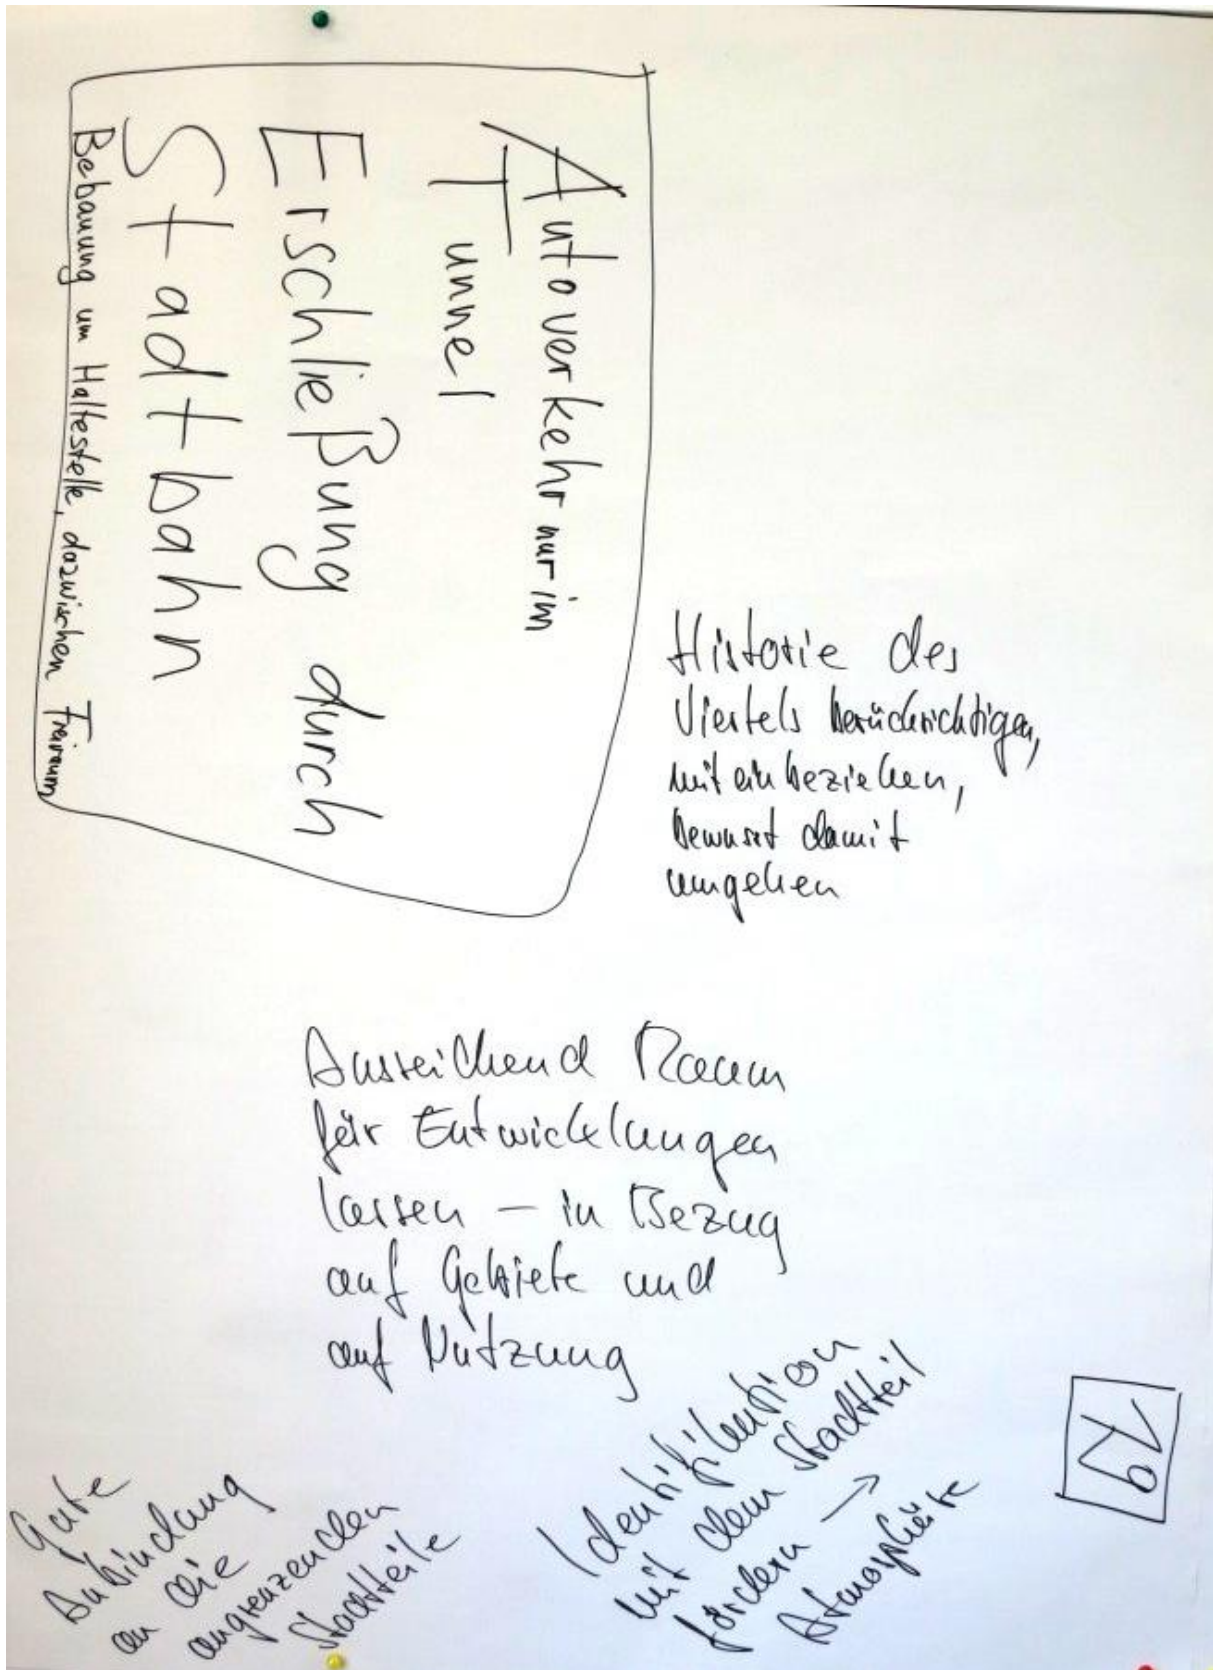 Autoverkehr nur im
Tunnel
Erschließung durch
Stadtbahn
Bebauung um Haltestelle, dazwischen Freiraum
Historie des
Viertels berücksichtigen,
mit einbeziehen,
bewusst damit
umgehen
Ausreichend Raum
für Entwicklungen
lassen – in Bezug
auf Gebiete und
auf Nutzung
Gute
Anbindung
an die
angrenzenden
Stadtteile
Identifikation
mit dem Stadtteil
fördern →
Atmosphäre
19